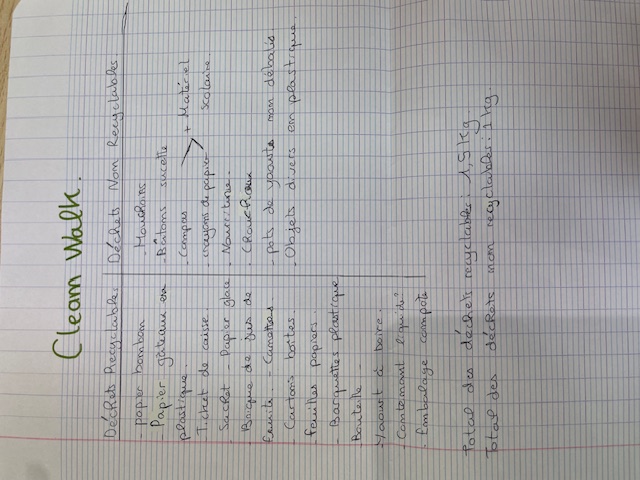 Clean Walk.
Déchets Recyclables
- papier bonbon
- Papier gâteaux en
plastique.
- Ticket de caisse.
- Sachet - Papier glace
- Brique de jus de
fruits. - Canettes
- Cartons boîtes.
- feuilles papiers.
- Barquettes plastique
- Bouteille
- Yaourt à boire.
- Contenant liquide
- Embalage compote
Déchets Non Recyclables
- Mouchoirs
- Bâtons sucette
- Compas
- crayons de papier
+ Matériel
scolaire
- Nourriture.
- Chouchoux
- pots de yaourts non déballés
- Objets divers en plastique.
Total des déchets recyclables : 1,5 Kg
Total des déchets non recyclables : 1 kg.